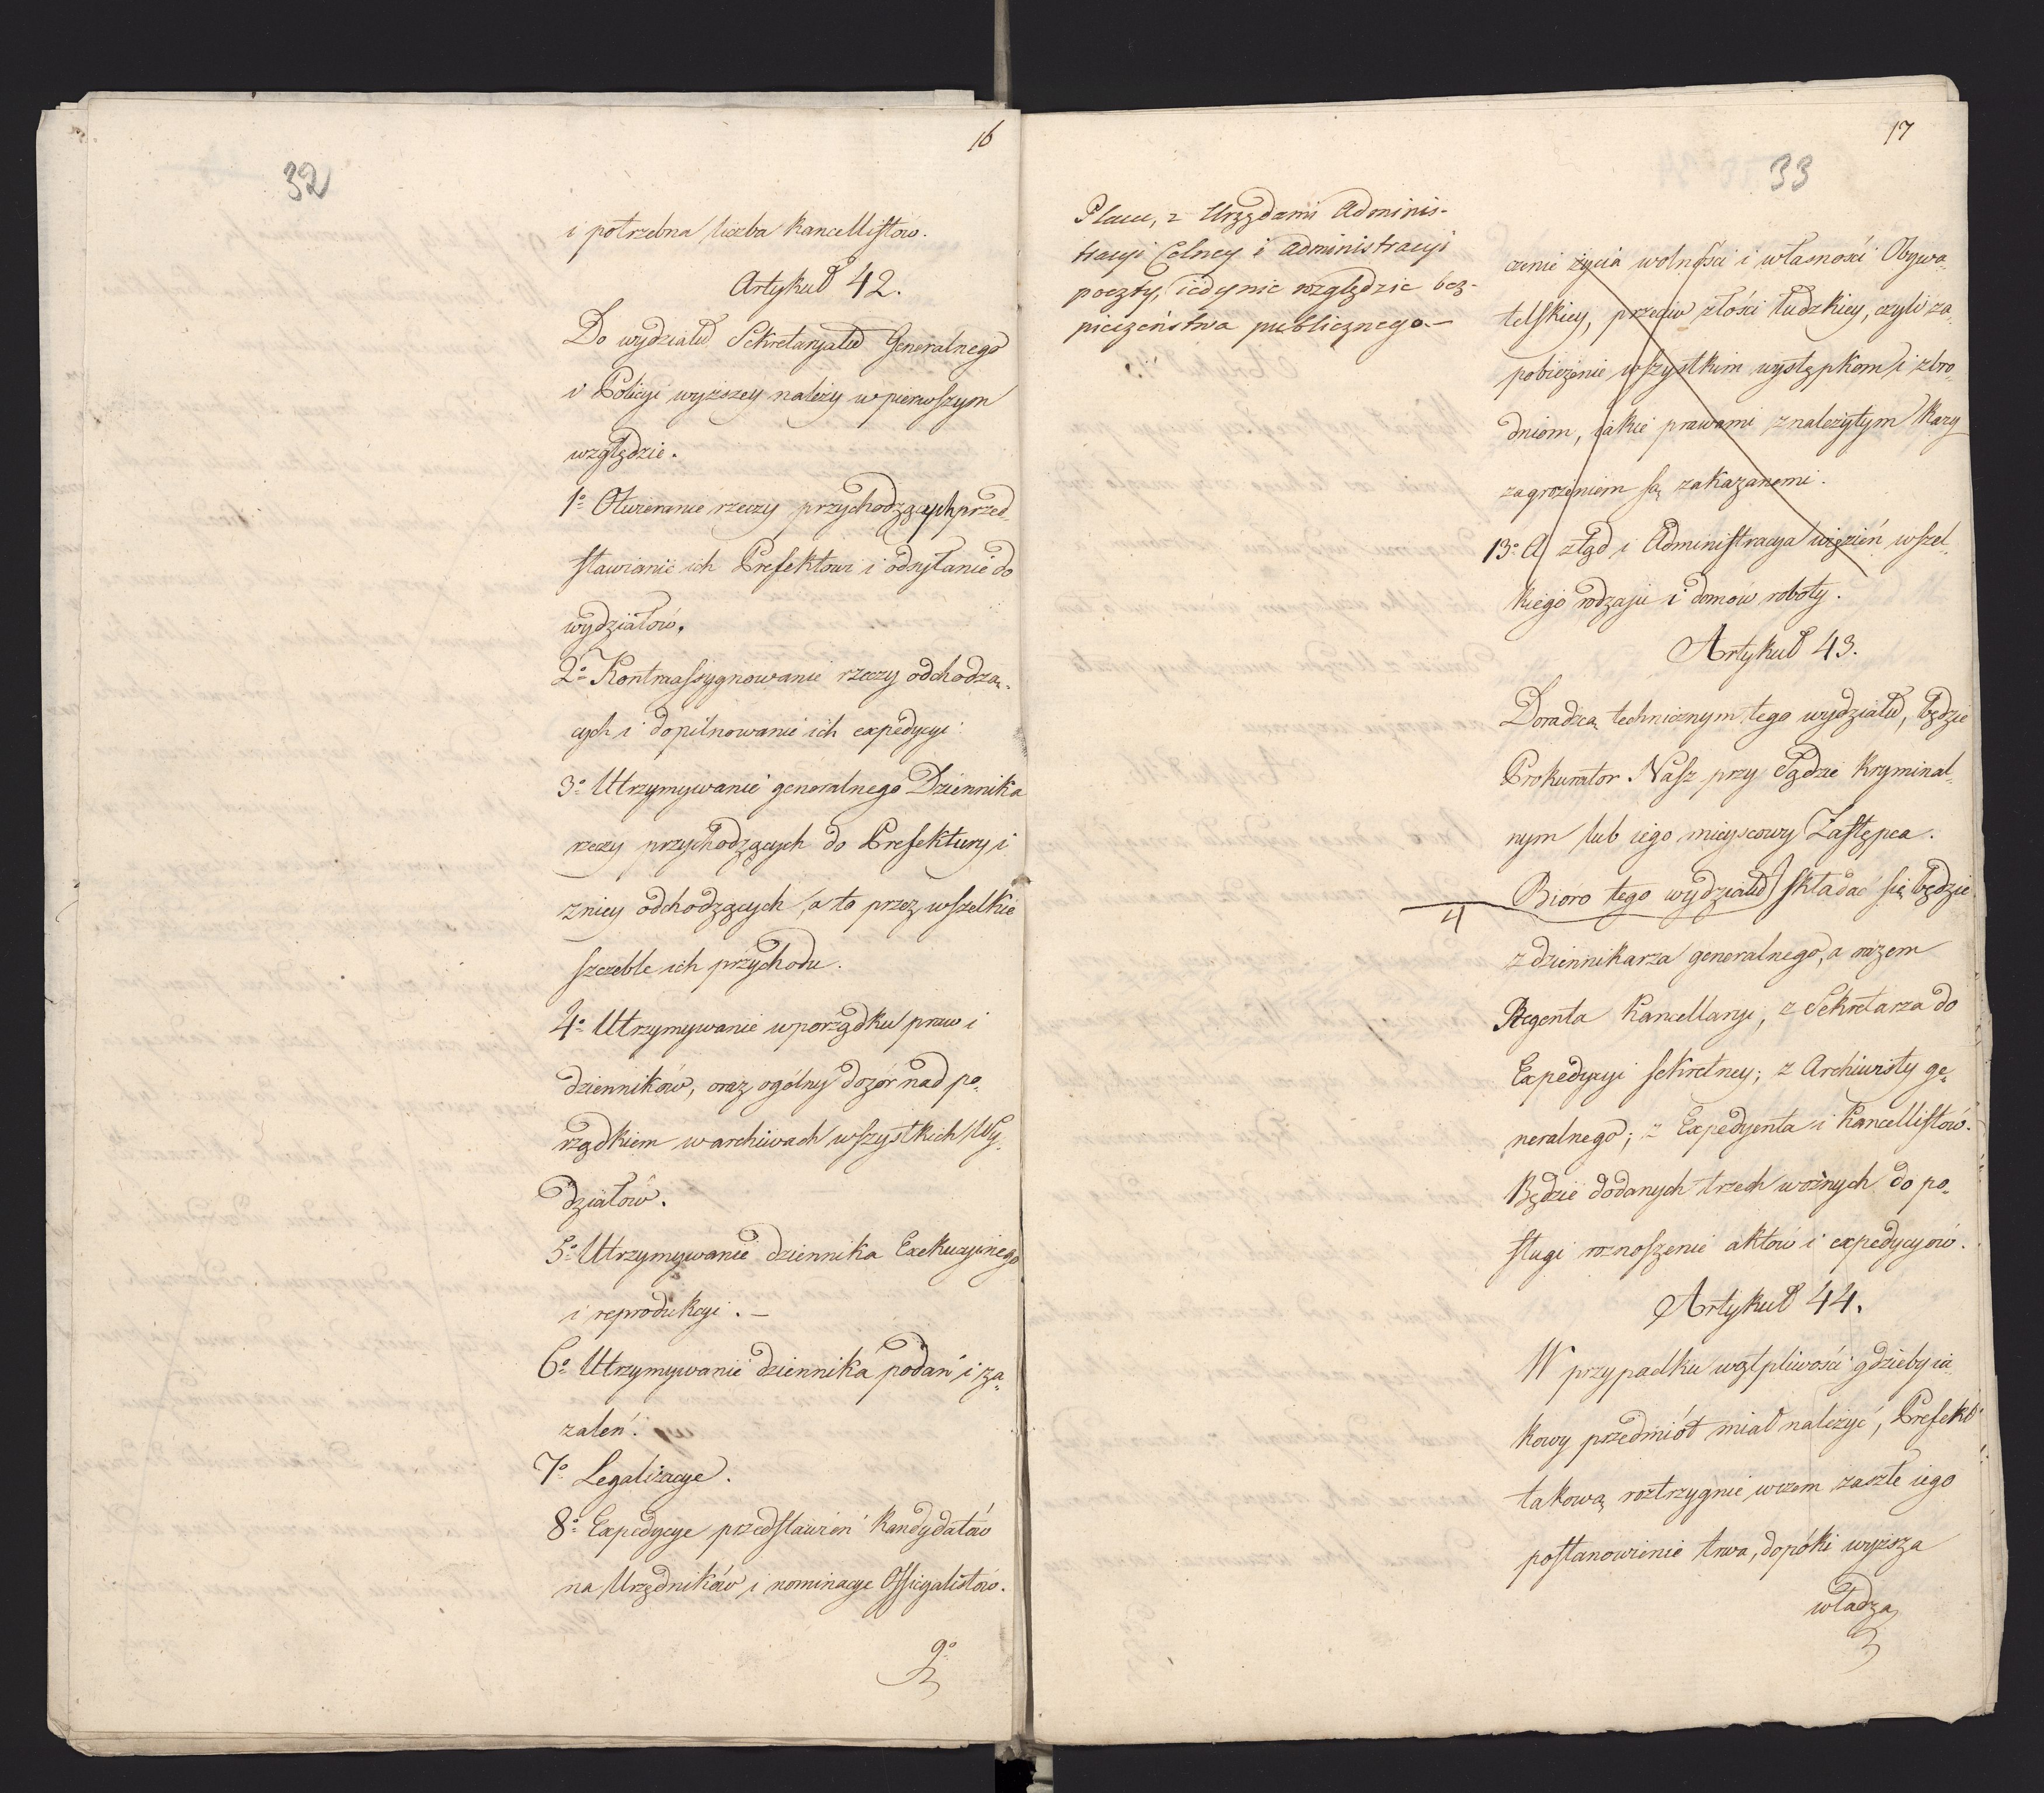 16
32
i potrzebna liczba Kancellistow.
Artykuł 42.
Do wydziału Sekretaryatu Generalnego
i Policyi wyższey należy w pierwszym
względzie.
1º Otwieranie rzeczy przychodzących przed-
stawianie ich Prefektowi i odsyłanie do
wydziałów.
2º Kontraassygnowanie rzeczy odchodzą-
cych i dopilnowanie ich expedycyi
3º Utrzymywanie generalnego Dziennika
rzeczy przychodzących do Prefektury i
zniey odchodzących, a to przez wszelkie
szczeble ich przychodu.
4º Utrzymywanie w porządku praw i
dzienników, oraz ogólny dozór nad po-
rządkiem w archiwach wszystkich Wy-
działów.
5º Utrzymywanie dziennika Exekucyinego
i reprodukcyi. —
6º Utrzymywanie dziennika podań i za-
żaleń.
7º Legalizacye.
8º Expedycye przedstawień Kandydatów
na Urzędników i nominacye Officyalistów.
9º
17
33
Placu, z Urzędami Adminis-
tracyi Celney i Administracyi
poczty, iedynie względzie bez-
pieczeństwa publicznego. —
czenie życia wolności i własności Obywa-
telskiey, przeciw złości ludzkiey, czyli za-
pobieżenie wszystkim występkom i zbro-
dniom, iakie prawami z należytym Kary
zagrożeniem są zakazanemi.
13º A złąd i Administracya więzień wszel-
kiego rodzaju i domów roboty.
Artykuł 43.
Doradzcą technicznym tego wydziału, będzie
Prokurator Nasz przy Sądzie Kryminal-
nym lub iego mieyscowy Zastępca.
Bioro tego wydziału składać się będzie
4
z dziennikarza generalnego, a razem
Regenta Kancellaryi, z Sekretarza do
Expedycyi sekretney; z Archiwisty ge-
neralnego; z Expedyenta i Kancellistów.
Będzie dodanych trzech woźnych do po-
sługi roznoszenie aktów i expedycyów.
Artykuł 44.
W przypadku wątpliwości gdzieby ia-
kowy przedmiót miał należyć, Prefekt
takową roztrzygnie wczem zaszłe iego
postanowienie trwa, dopóki wyższa
władza